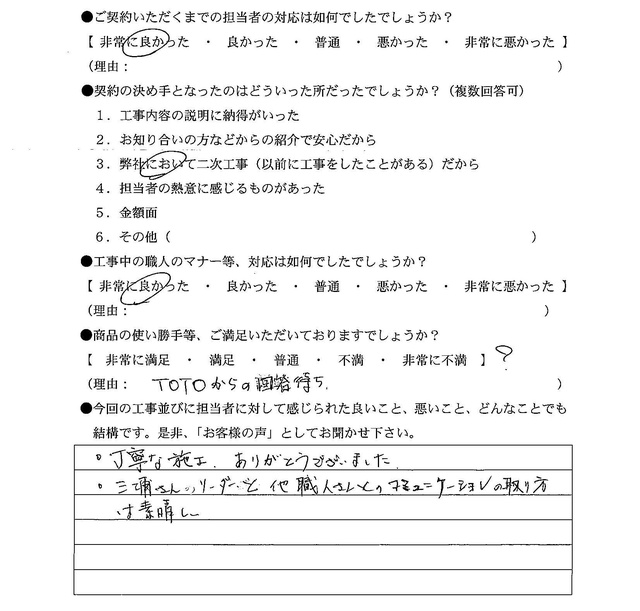 ●ご契約いただくまでの担当者の対応は如何でしたでしょうか？
【 非常に良かった ・ 良かった ・ 普通 ・ 悪かった ・ 非常に悪かった 】
（理由： ）
●契約の決め手となったのはどういった所だったでしょうか？（複数回答可）
１．工事内容の説明に納得がいった
２．お知り合いの方などからの紹介で安心だから
３．弊社において二次工事（以前に工事をしたことがある）だから
４．担当者の熱意に感じるものがあった
５．金額面
６．その他（ ）
●工事中の職人のマナー等、対応は如何でしたでしょうか？
【 非常に良かった ・ 良かった ・ 普通 ・ 悪かった ・ 非常に悪かった 】
（理由： ）
●商品の使い勝手等、ご満足いただいておりますでしょうか？
【 非常に満足 ・ 満足 ・ 普通 ・ 不満 ・ 非常に不満 】？
（理由： TOTOからの回答待ち． ）
●今回の工事並びに担当者に対して感じられた良いこと、悪いこと、どんなことでも
結構です。是非、「お客様の声」としてお聞かせ下さい。
・丁寧な施工．ありがとうございました．
・三浦さんのリーダーと他職人さんとのコミュニケーションの取り方
は素晴しい